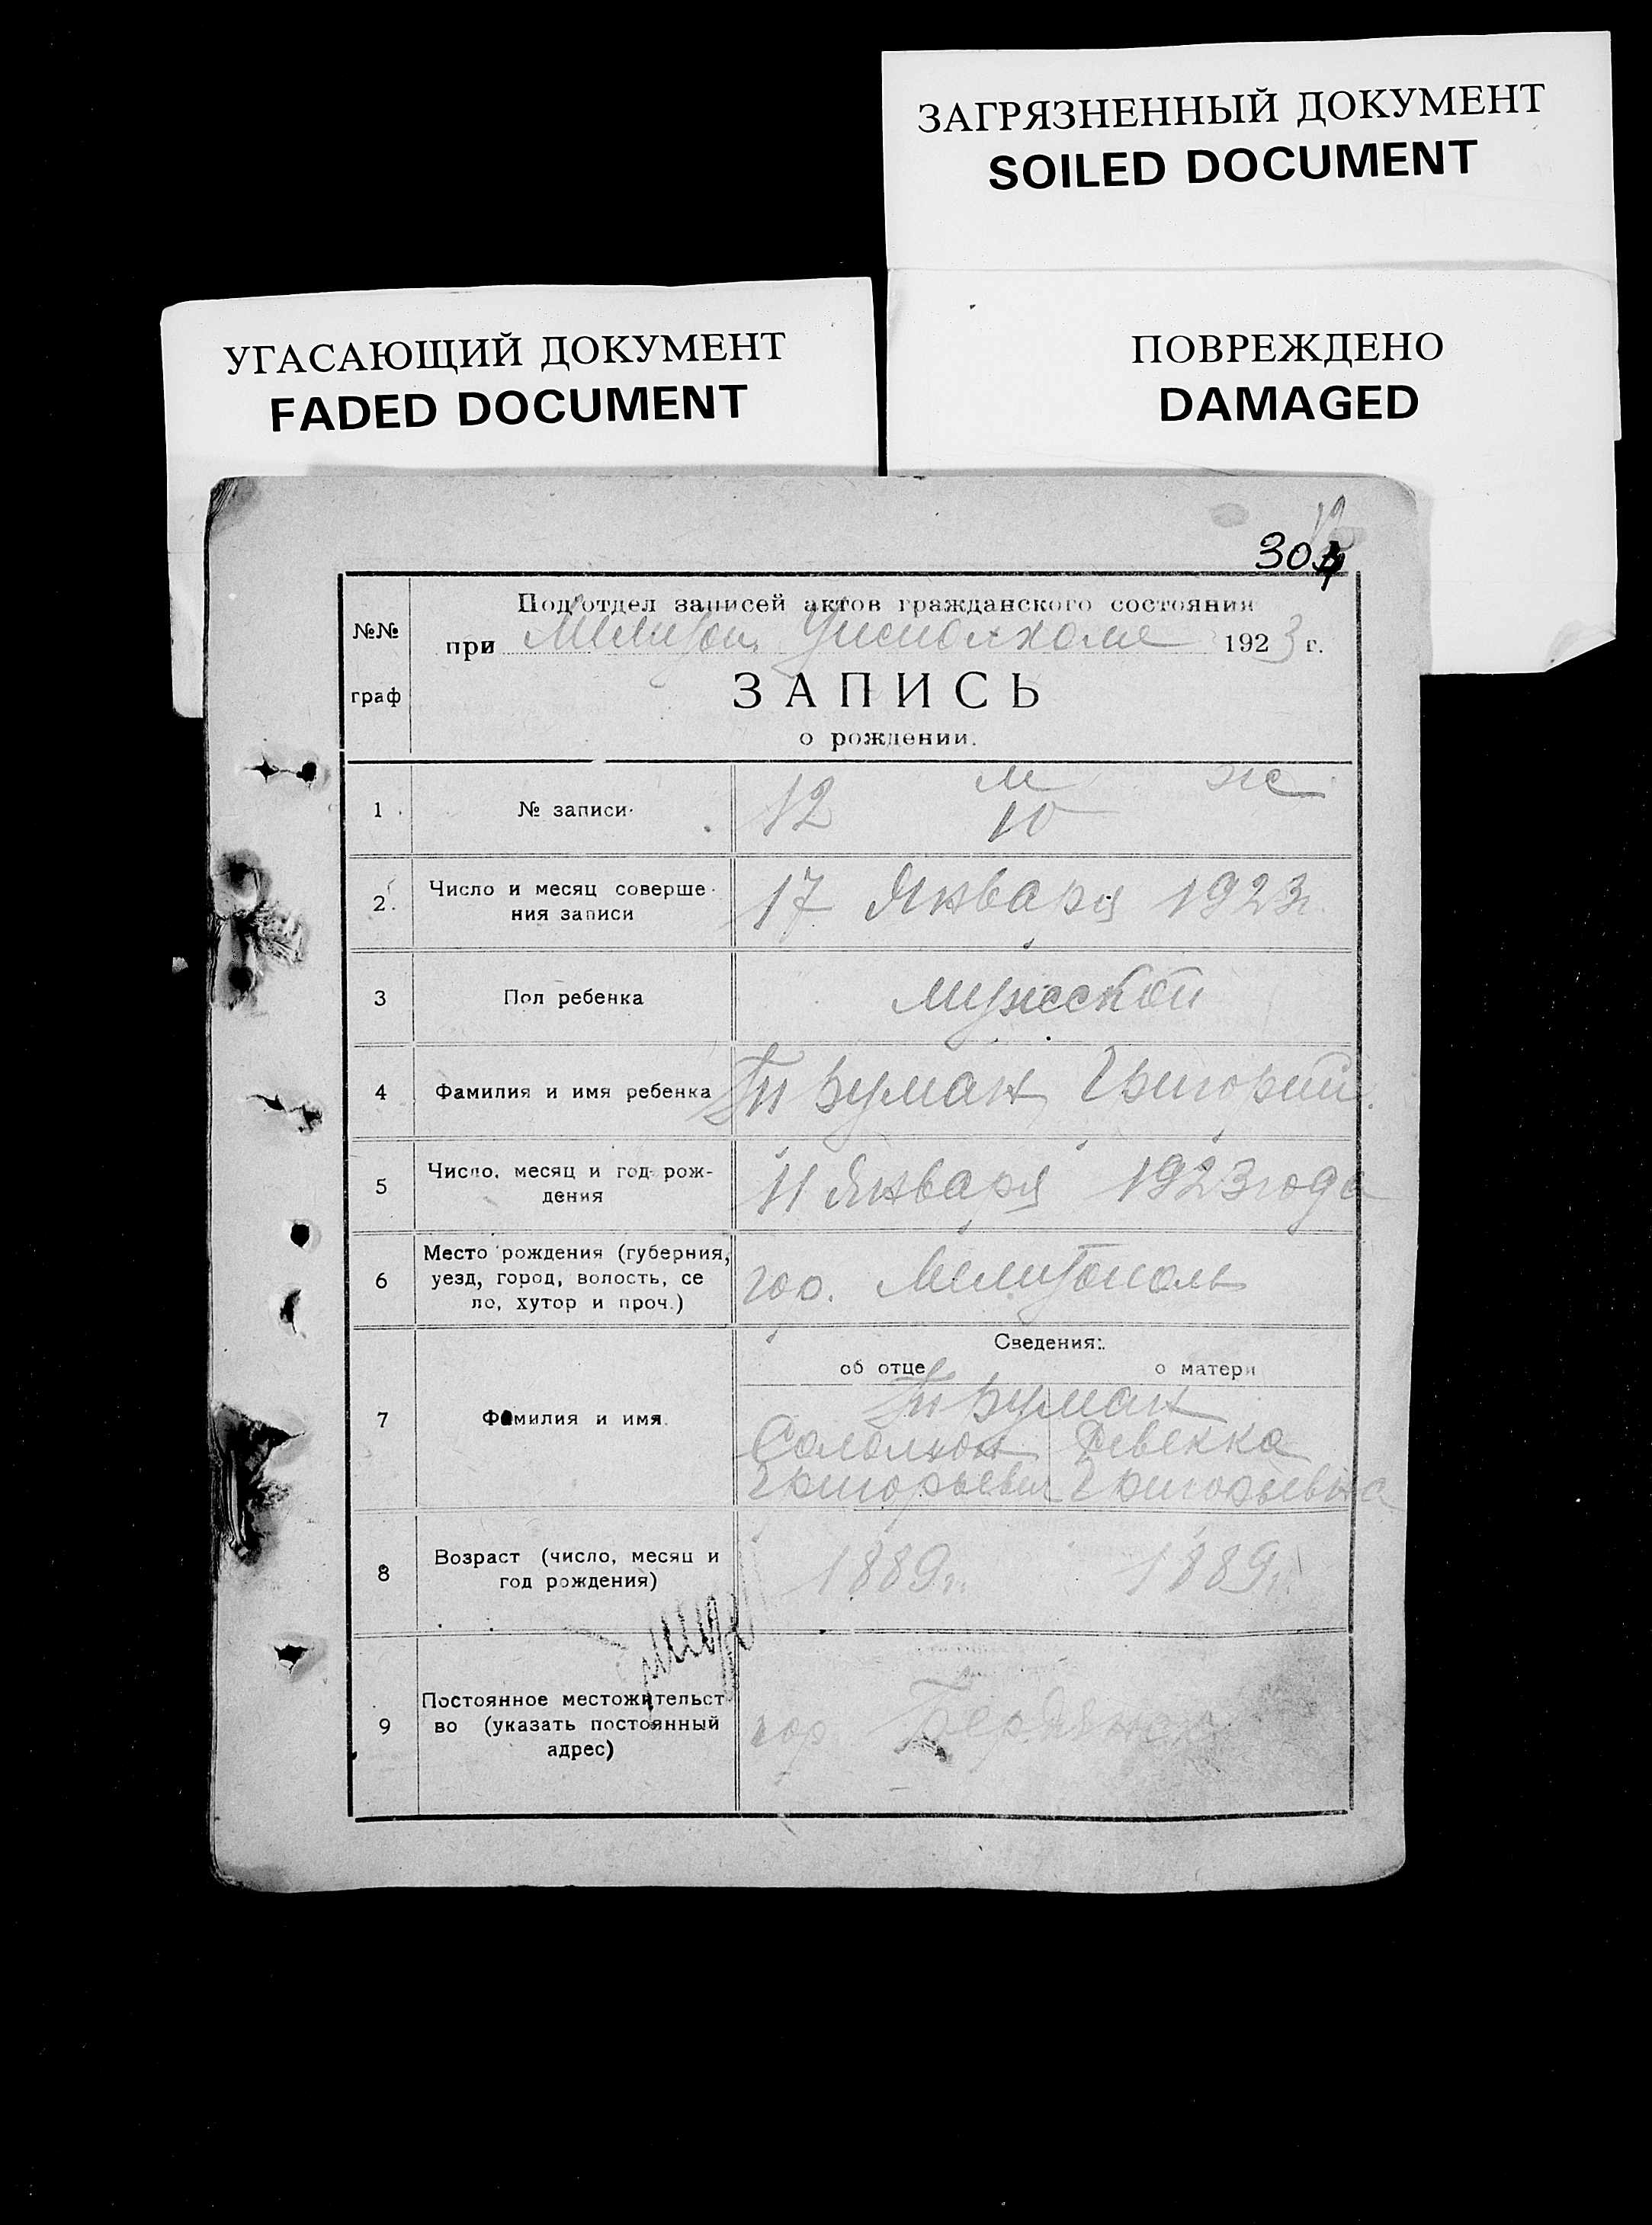 ЗАГРЯЗНЕННЫЙ ДОКУМЕНТ
SOILED DOCUMENT
УГАСАЮЩИЙ ДОКУМЕНТ
FADED DOCUMENT
ПОВРЕЖДЕНО
DAMAGED
12
304
№№
граф
Под'отдел записей актов гражданского состояния
при Мелитоп. Уисполкоме 1923 г.
ЗАПИСЬ
о рождении.
м ж
1 № записи 12 10 —
2 Число и месяц соверше-
ния записи 17 Января 1923 г.
3 Пол ребенка мужской
4 Фамилия и имя ребенка Григорий.
5 Число, месяц и год рож-
дения 11 Января 1923 года
6 Место рождения (губерния,
уезд, город, волость, се
ло, хутор и проч.) гор. Мелитополь
Сведения:
об отце о матери
7 Фамилия и имя
Соломон Ревекка
Григорьевич Григорьевна
8 Возраст (число, месяц и
год рождения) 1889 г. 1889 г.
9 Постоянное местожительст-
во (указать постоянный
адрес) гор Бердянск